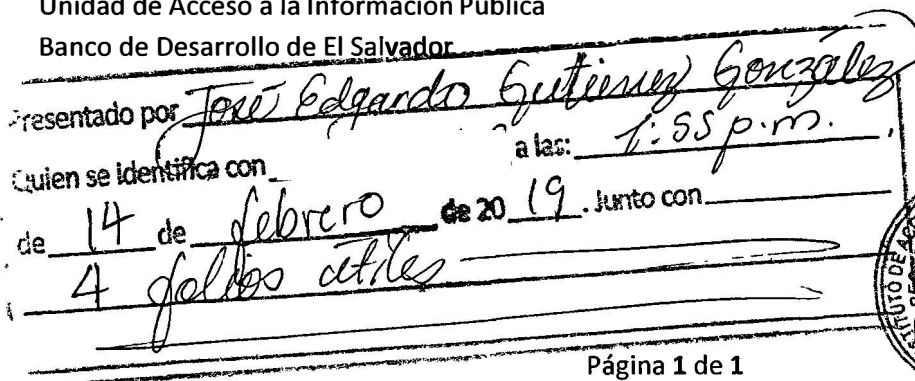 Unidad de Acceso a la Información Pública
Banco de Desarrollo de El Salvador
Presentado por José Edgardo Gutierrez González
Quien se identifica con a las: 1:55 p.m.
de 14 de febrero de 20 19. Junto con
4 folios utiles
Página 1 de 1